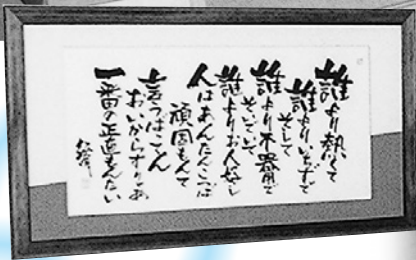 誰より熱くて
誰よりいちずで
そして
誰より不器用で
そいでいて
誰よりお人好し
人はあんたんこつば
頑固もんて
言うばってん
おいからすりゃあ
一番の正直もんたい